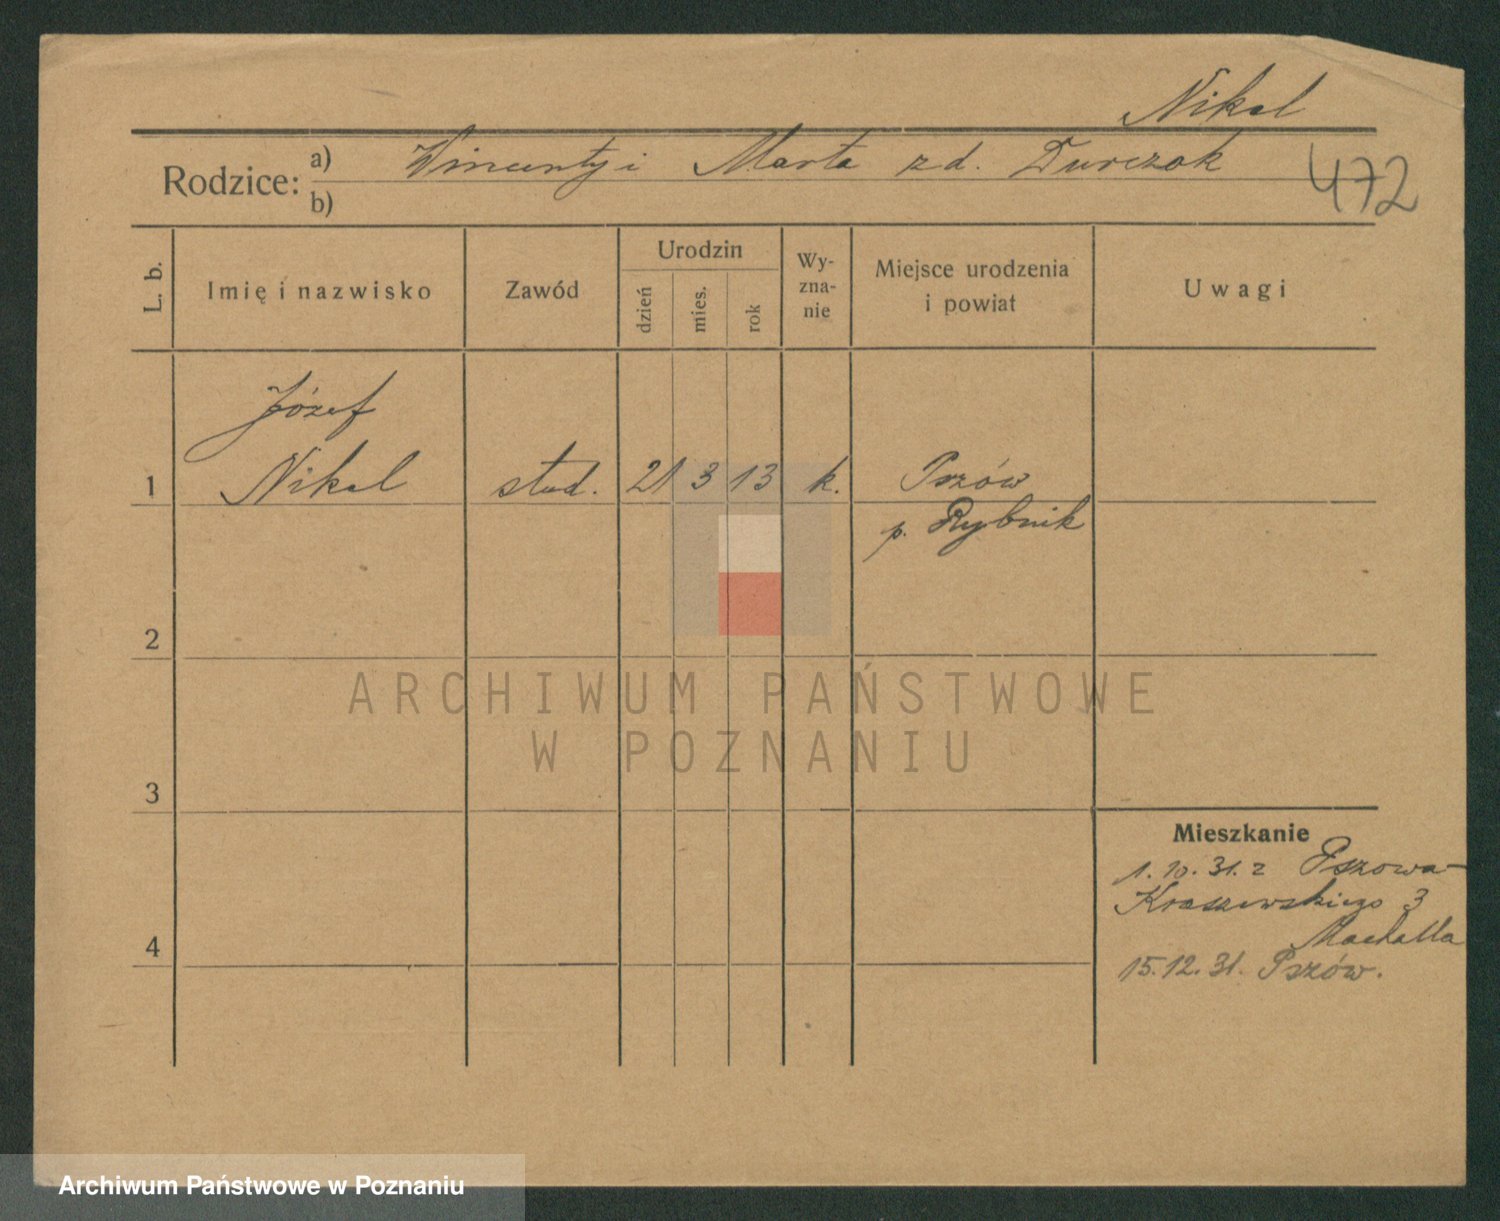 Nikel
Rodzice: a) Wincenty i Marta z d. Durczok
472
b)
L. b.
Imię i nazwisko
Zawód
Urodzin
dzień
mies.
rok
Wy-
zna-
nie
Miejsce urodzenia
i powiat
Uwagi
Józef
1 Nikel stud. 21 3 13 k. Pszów
p. Rybnik
2
ARCHIWUM PAŃSTWOWE
W POZNANIU
3
Mieszkanie
1.10.31. z Pszowa
Kraszewskiego 3
Machalla
4
15.12.31. Pszów.
Archiwum Państwowe w Poznaniu